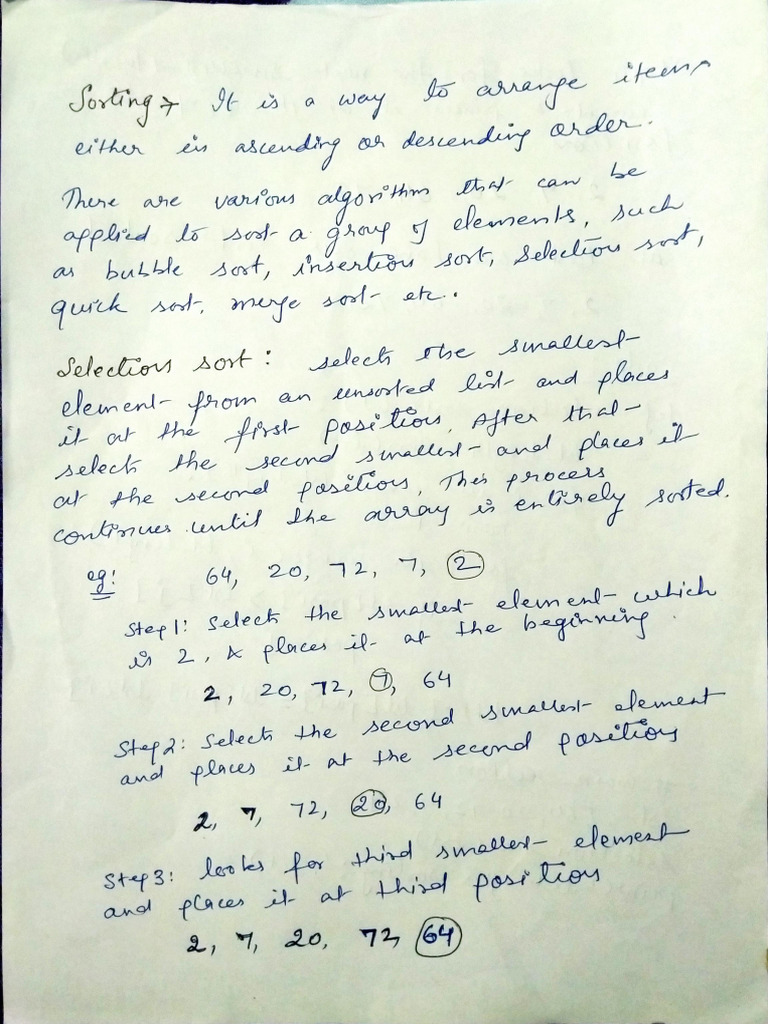 Sorting → It is a way to arrange items
either in ascending or descending order.
There are various algorithm that can be
applied to sort a group of elements, such
as bubble sort, insertion sort, selection sort,
quick sort, merge sort etc.
Selection sort: selects the smallest
element from an unsorted list and places
it at the first position. After that
selects the second smallest and places it
at the second position. This process
continues until the array is entirely sorted.
eg: 64, 20, 72, 7, 2
Step 1: Selects the smallest element which
is 2, & places it at the beginning.
2, 20, 72, 7, 64
Step 2: Selects the second smallest element
and places it at the second position
2, 7, 72, 20, 64
Step 3: looks for third smallest element
and places it at third position
2, 7, 20, 72, 64